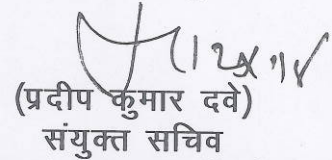 (प्रदीप कुमार दवे)
संयुक्त सचिव